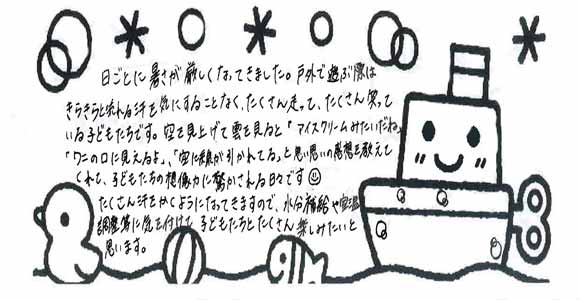 日ごとに暑さが厳しくなってきました。戸外で遊ぶ際は
きらきらと流れる汗を気にすることなく、たくさん走って、たくさん笑って
いる子どもたちです。空を見上げて雲を見ると「アイスクリームみたいだね」
「ワニの口に見えるよ」、「空に線が引かれてる」と思い思いの感想を教えて
くれて、子どもたちの想像力に驚かされる日々です☺
たくさん汗をかくようになってきますので、水分補給や室温
調整等に気を付けて、子どもたちとたくさん楽しみたいと
思います。